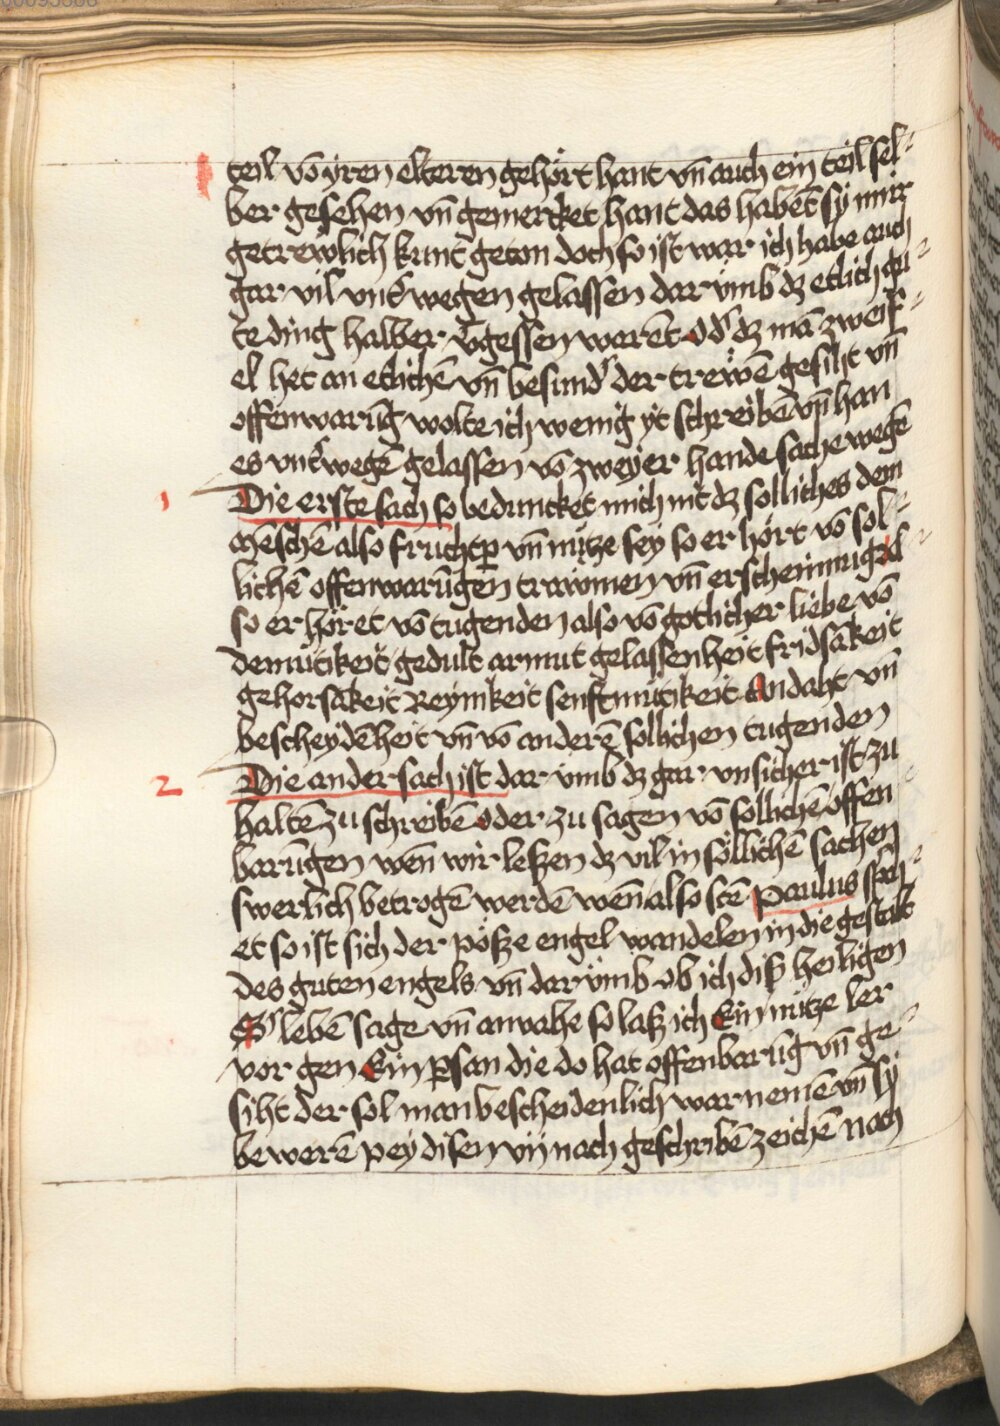 teil vō yren elteren gehört hant vn̄ auch ein teil sel-
ber gesehen vn̄ gemercket hant das habēt sy mir
getrewlich kunt geton doch so ist war ich habe auch
gar vil vnt' wegen gelassen dar vmb dz etlich gu-
te ding halber v'gessen warēt od' dz mā zweif-
el het an etlichē vn̄ besund' der trewē gesiht vn̄
offenwarūg wolte ich wenig yt schreibē vn̄ han
es vnt' wegē gelassen vō zweyer hande sache wegē
1 Die erste sach so beduncket mich nit dz solliches dem
mēschē also fruchtper vn̄ nütze sey so er hört vō sol-
lichē offenwarūgen trawmen vn̄ erscheinnugē als
so er höret vō tugenden also vō gotlicher liebe vō
demütikeit gedult armut gelassenheit fridsākeit
gehorsākeit Reynikeit senftmütikeit Andaht vn̄
bescheydēheit vn̄ vō anderē sollichen tugenden
2 Die ander sach ist dar vmb dz gar vnsicher ist zu
haltē zu schreibē oder zu sagen vō sollichē offen
barūgen wēn wir leszen dz vil in söllichē sachen
swerlich betrogē werdē wēn also sctē Paulus spch-
et so ist sich der pösze engel wandelen in die gestalt
des guten engels vn̄ dar vmb ob ich diſz heiligen
S' lebē sage vn̄ anvahe so lasz ich Ein nütze ler
vor gen Ein pson die do hat offenbarūg vn̄ ge-
siht der sol man bescheidenlich war nemē vn̄ sy
bewerē pey disen vij nach geschribē zeichē nach